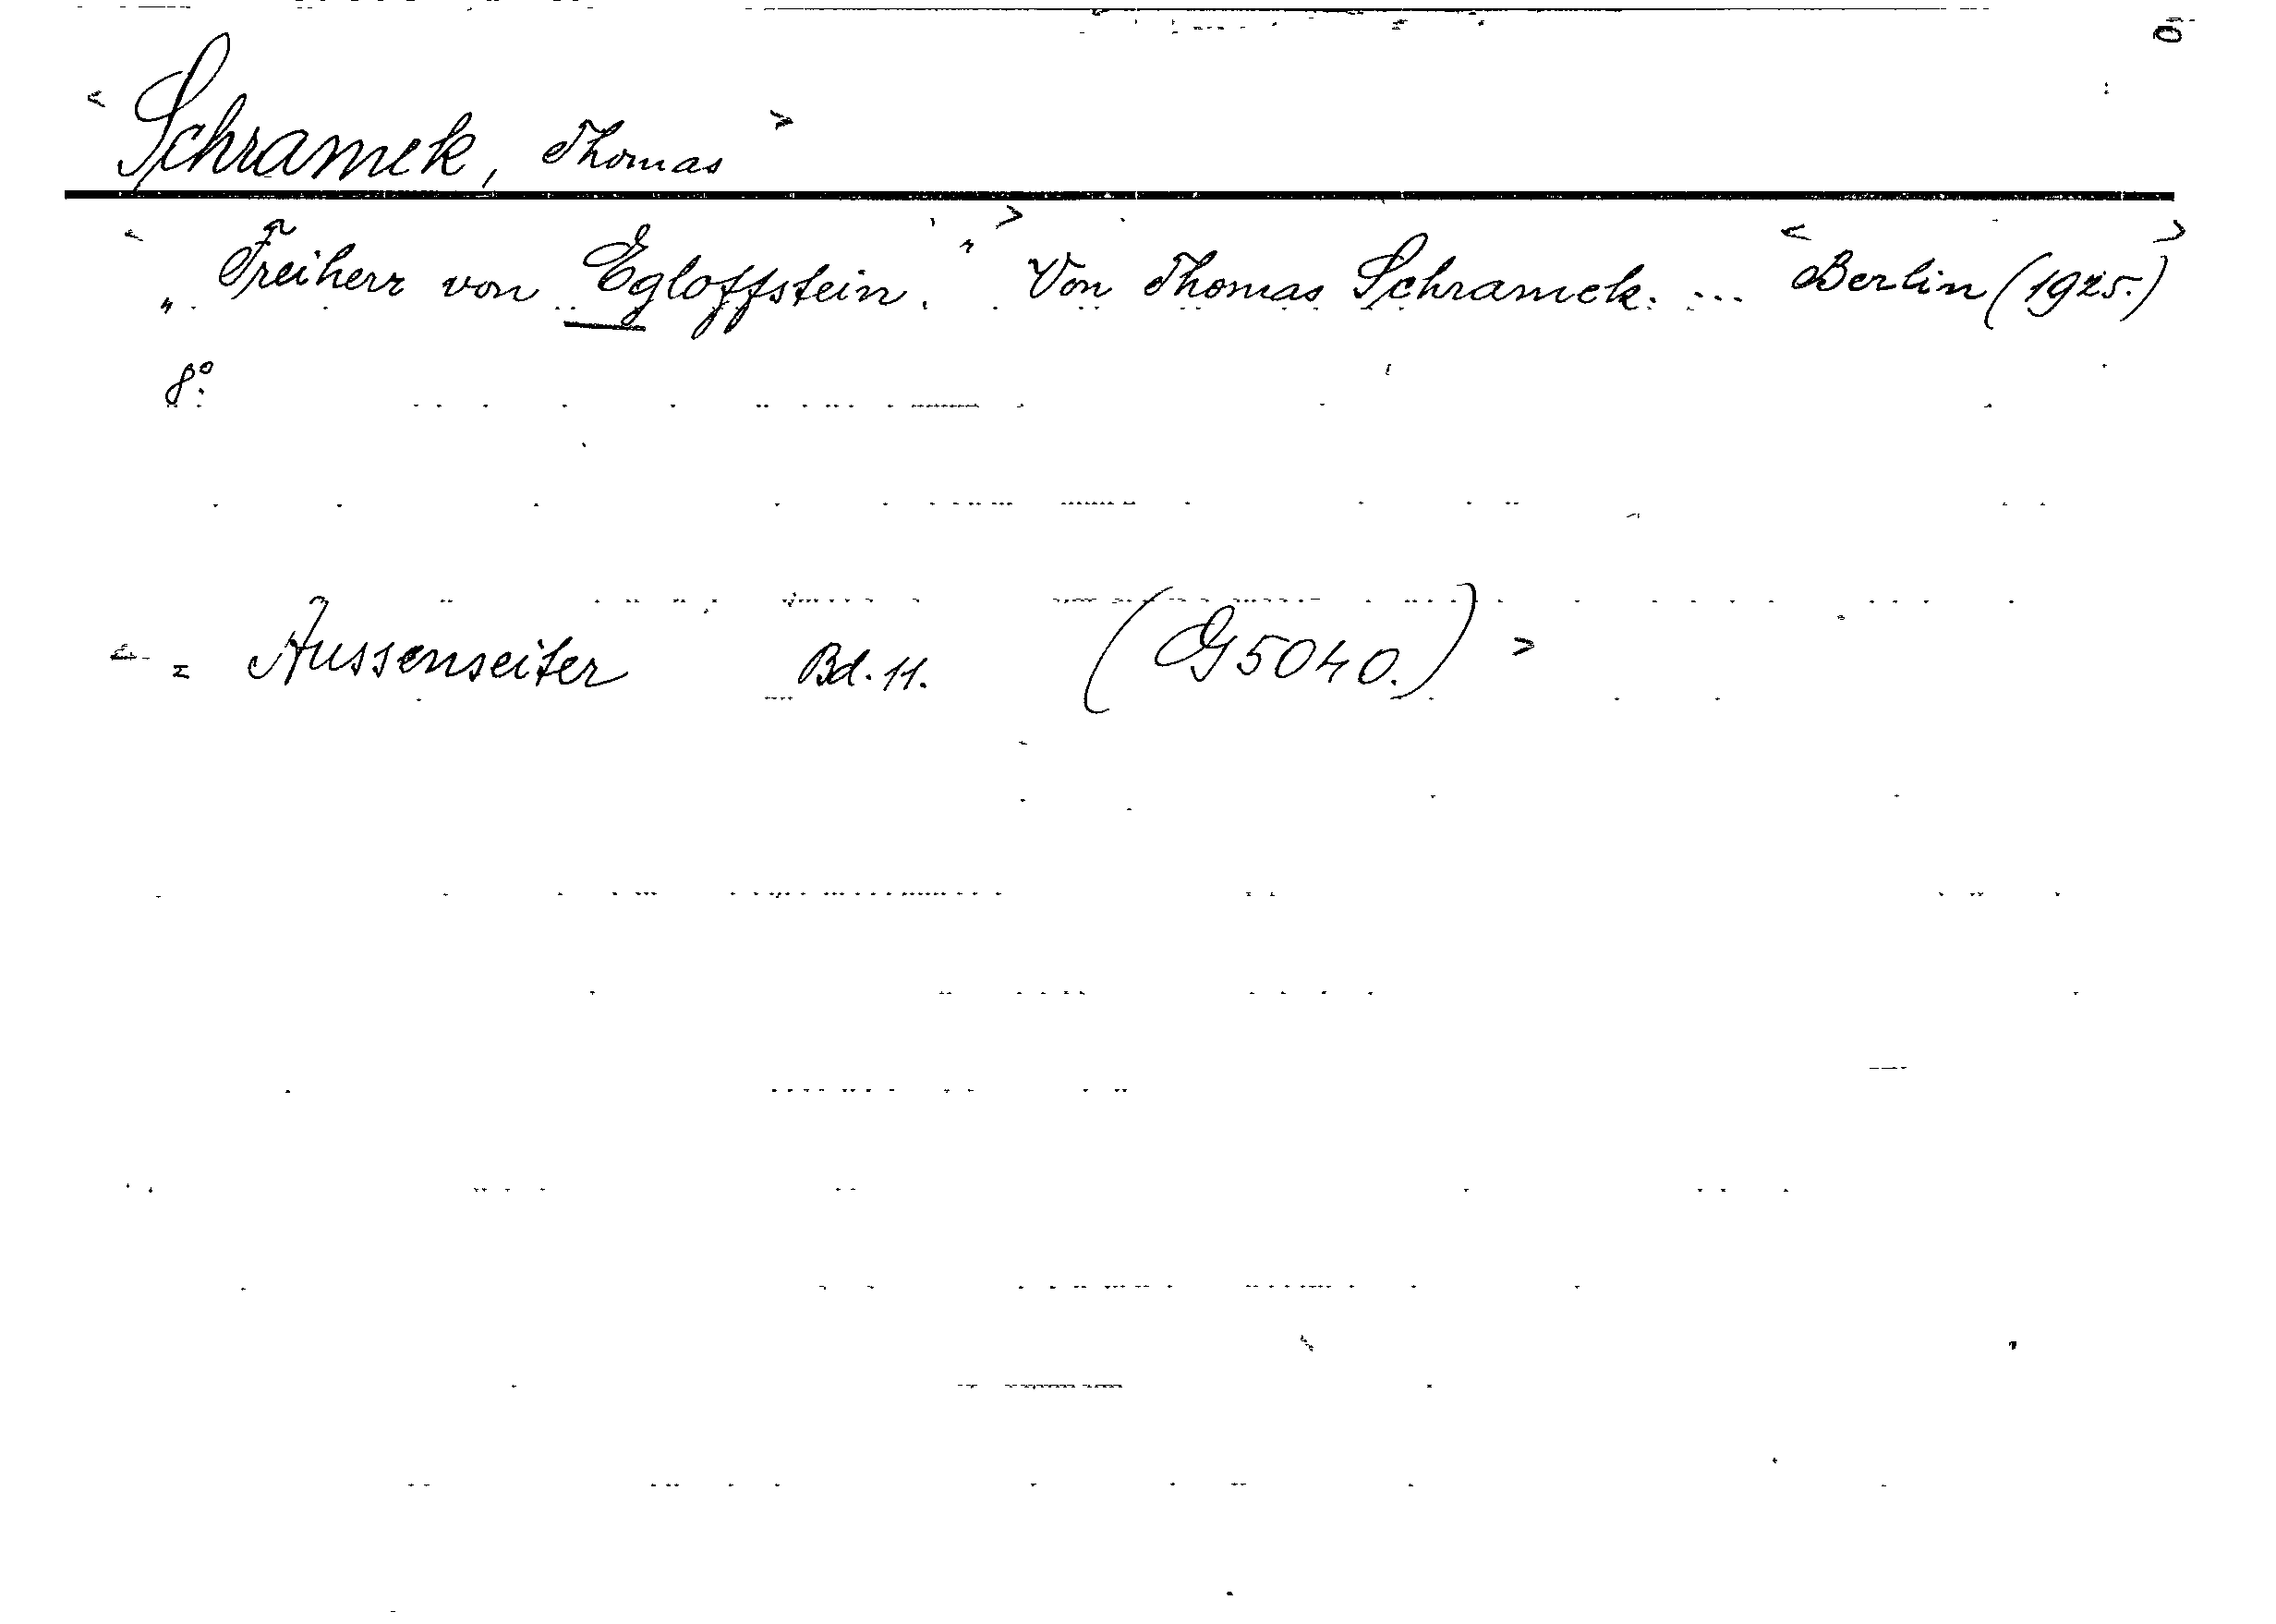 < Schramek, Thomas >
< „Freiherr von Egloffstein." > Von Thomas Schramek. ... < Berlin (1925.) >
8°.
< = Aussenseiter Bd. 11. (G 5040.) >